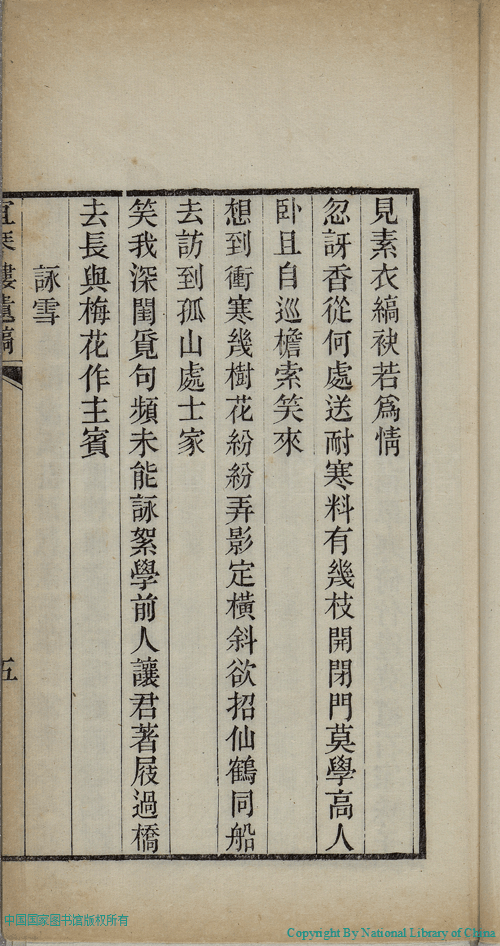 見素衣縞袂若爲情
忽訝香從何處送耐寒料有幾枝開閉門莫學高人
卧且自巡檐索笑來
想到衝寒幾樹花紛紛弄影定橫斜欲招仙鶴同船
去訪到孤山處士家
笑我深閨覓句頻未能詠絮學前人讓君著屐過橋
去長與梅花作主賓
詠雪
宜琴樓遺稿
五
中国国家图书馆版权所有
Copyright By National Library of China